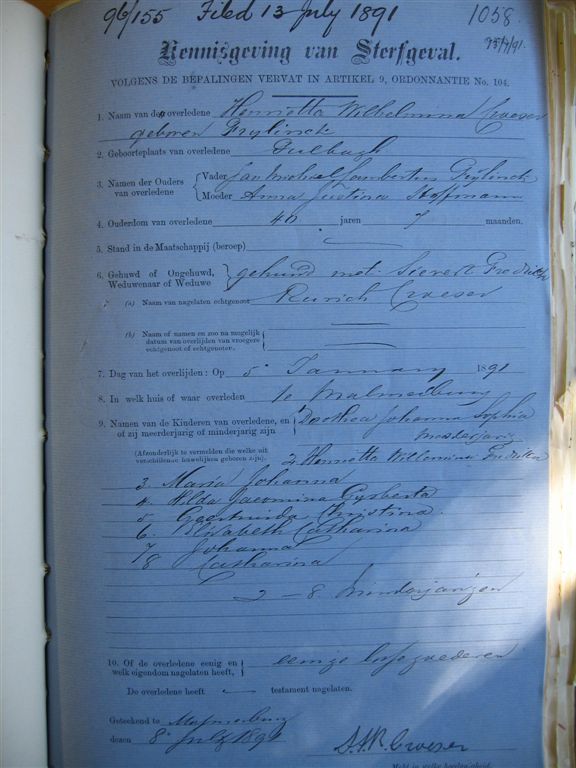 96/155 Filed 13 July 1891 1058
Kennisgeving van Sterfgeval.
VOLGENS DE BEPALINGEN VERVAT IN ARTIKEL 9, ORDONNANTIE No. 104.
1. Naam van de overledene Henrietta Wilhelmina Croeser
geboren Frylinck
2. Geboorteplaats van overledene Tulbagh
3. Namen der Ouders van overledene
Vader Jan Michael Lambertus Frylinck
Moeder Anna Justina Hoffmann
4. Ouderdom van overledene 40 jaren 7 maanden.
5. Stand in de Maatschappij (beroep) —
6. Gehuwd of Ongehuwd, Weduwenaar of Weduwe gehuwd met Sievert Fredrik
(a) Naam van nagelaten echtgenoot Rurich Croeser
(b) Naam of namen en zoo na mogelijk datum van overlijden van vroegere echtgenoot of echtgenoten. —
7. Dag van het overlijden: Op 5 January 1891
8. In welk huis of waar overleden te Malmesbury
9. Namen van de Kinderen van overledene, en of zij meerderjarig of minderjarig zijn 1 Dorothea Johanna Sophia
meerderjarig
(Afzonderlijk te vermelden die welke uit verschillende huwelijken geboren zijn). 2 Henrietta Willemina
3. Maria Johanna
4. Hilda Jacomina Gysberta
5 Geertruida Christina
6. Elizabeth Catharina
7 Johanna
8 Catharina
2 – 8. Minderjarigen
10. Of de overledene eenig en welk eigendom nagelaten heeft, eenige losse goederen
De overledene heeft — testament nagelaten.
Geteekend te Malmesbury
dezen 8 July 1891
Croeser